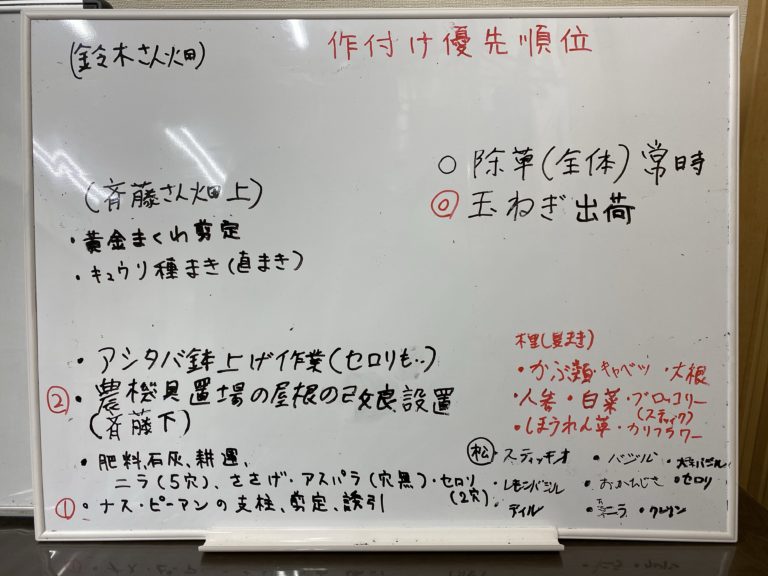 作付け優先順位
(鈴木さん畑)
○ 除草(全体)常時
◎ 玉ねぎ出荷
(斉藤さん畑上)
・黄金まくわ剪定
・キュウリ種まき(直まき)
・アシタバ鉢上げ作業(セロリも..)
② ・農機具置場の屋根の改良設置
(斉藤下)
・肥料、石灰、耕運、
ニラ(5穴)、ささげ・アスパラ(穴無)・セロリ(2穴)
① ・ナス・ピーマンの支柱、剪定、誘引
(夏まき)
・かぶ類・キャベツ ・大根
・人参 ・白菜・ブロッコリー
(スティック)
・ほうれん草・カリフラワー
松 ・スティッキオ ・バジル
・レモンバジル ・おかひじき ・セロリ
・ディル ・ニラ